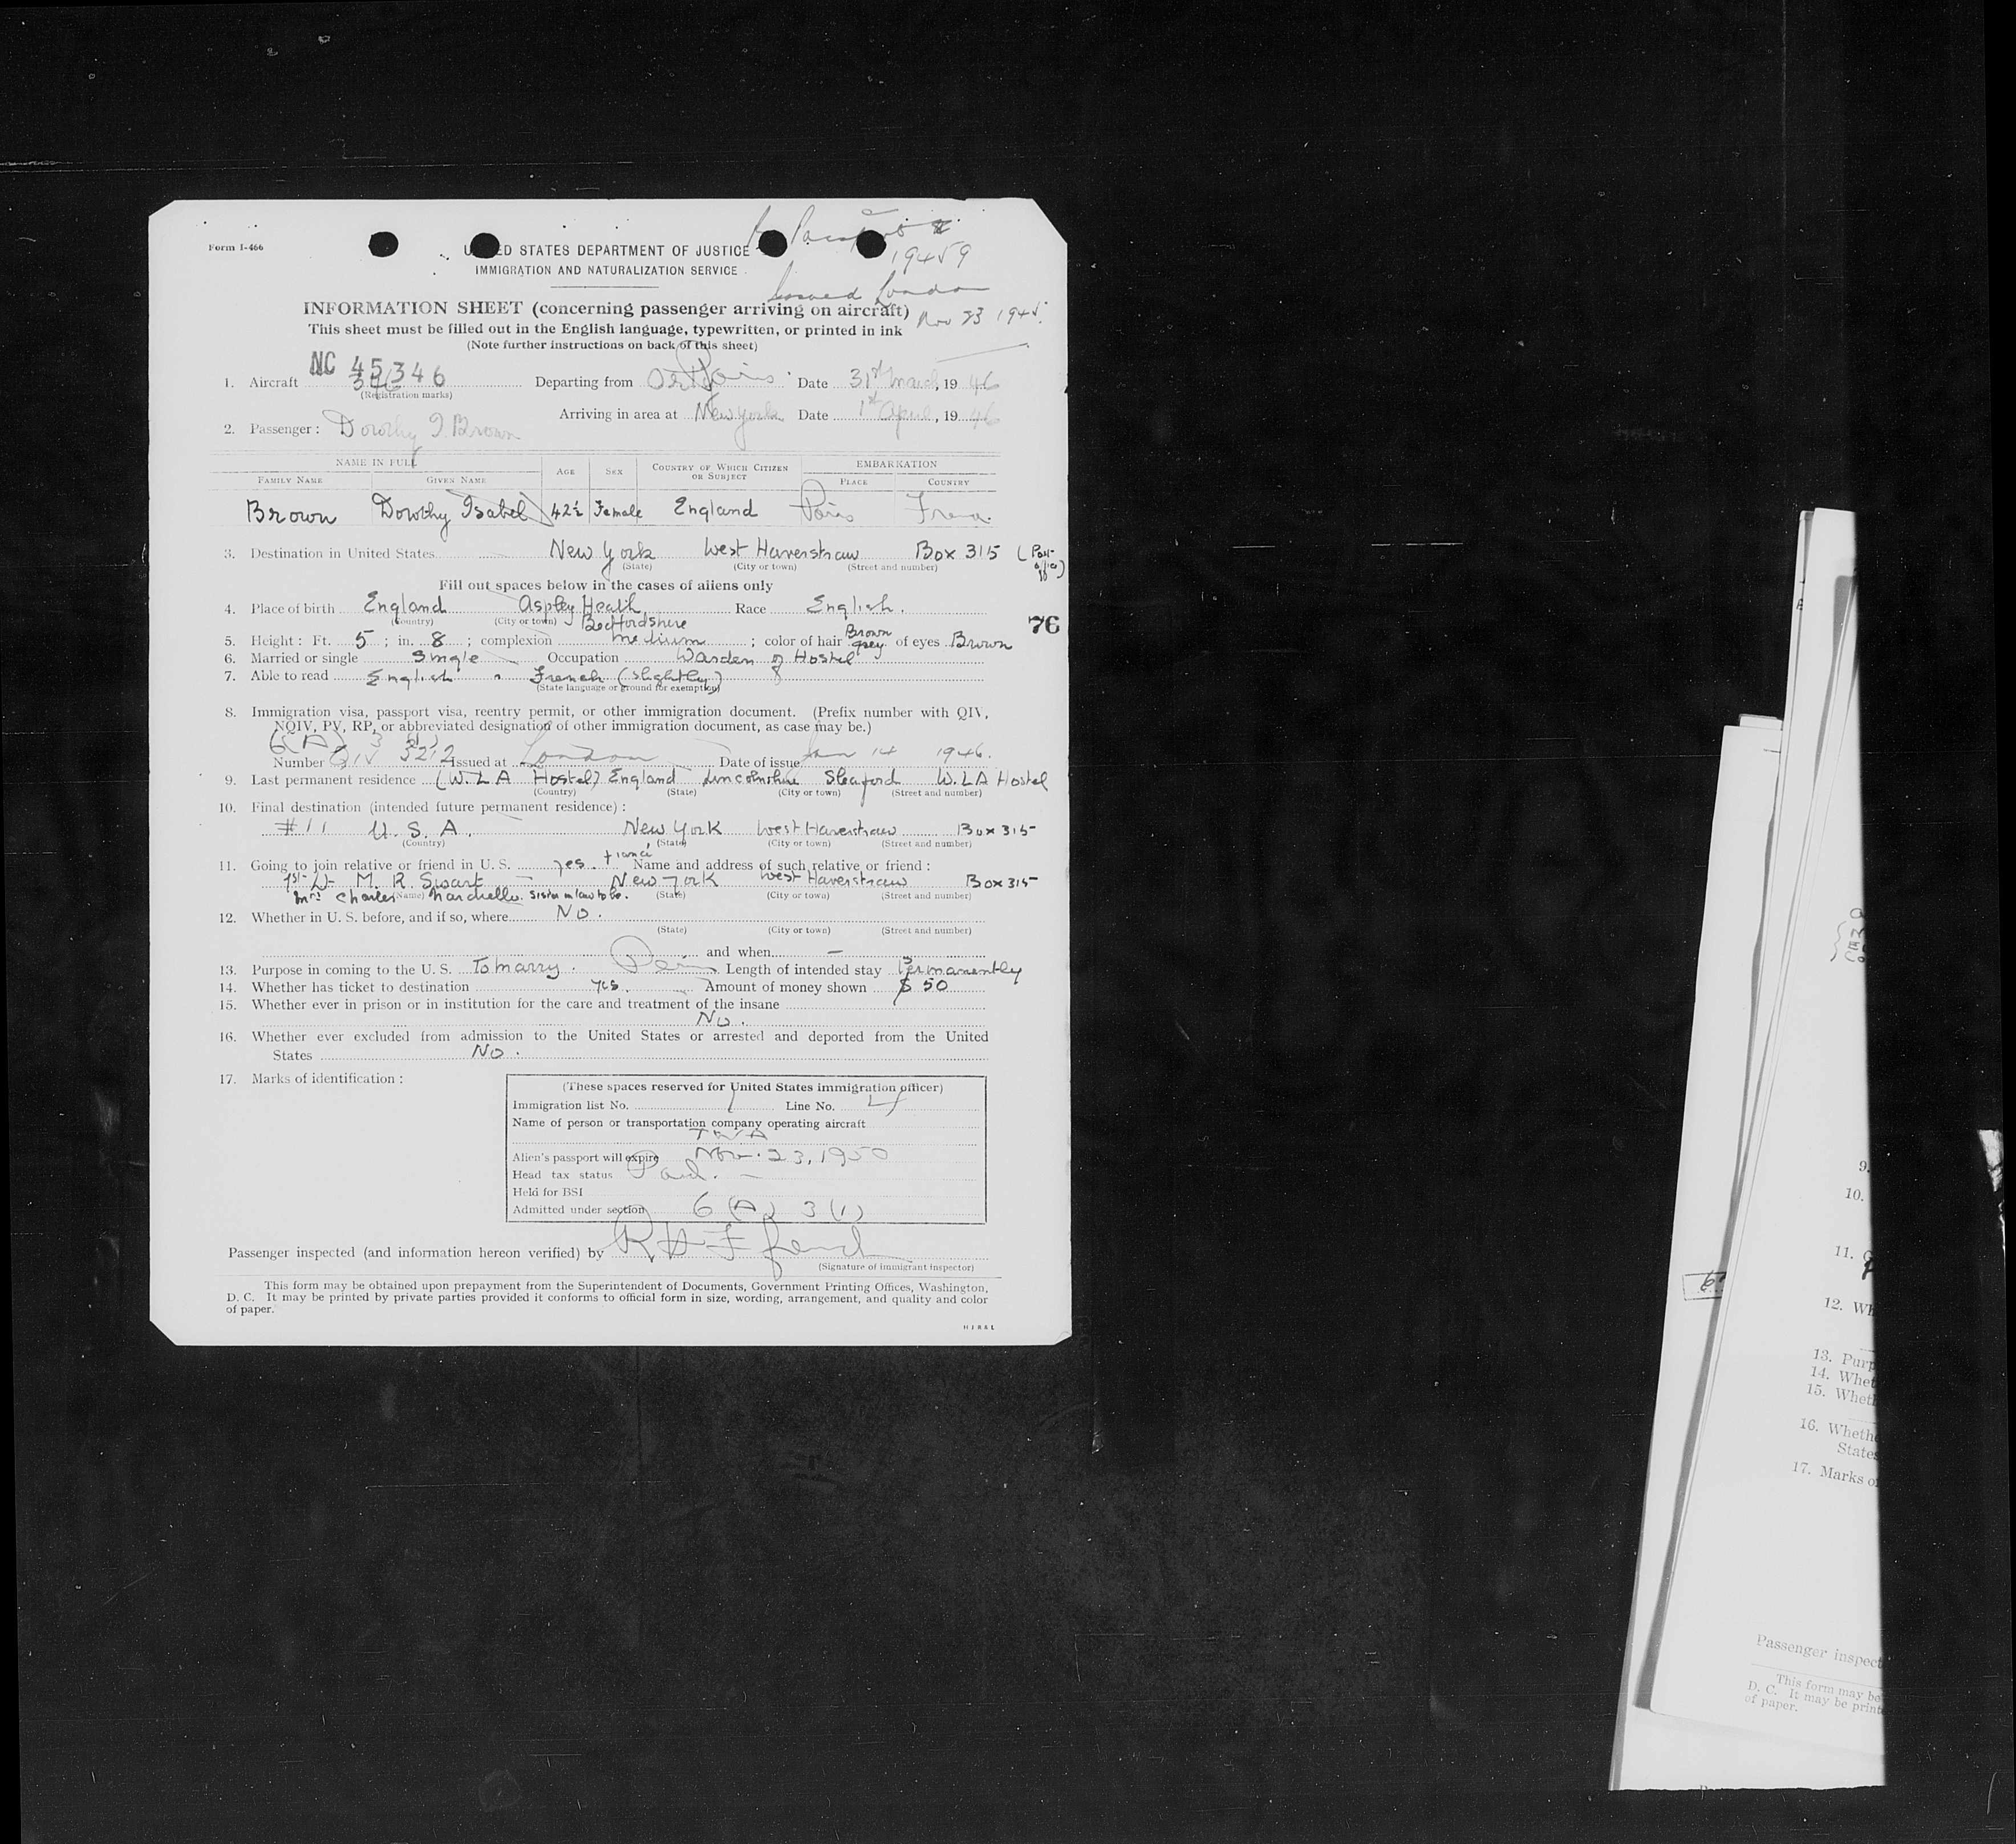 Form I-466
UNITED STATES DEPARTMENT OF JUSTICE
IMMIGRATION AND NATURALIZATION SERVICE
Passport
19459
Issued London
Nov 23 1945.
INFORMATION SHEET (concerning passenger arriving on aircraft)
This sheet must be filled out in the English language, typewritten, or printed in ink
(Note further instructions on back of this sheet)
1. Aircraft NC 45346 Departing from Paris Date 31st March, 1946
(Registration marks)
Arriving in area at New York Date 1st April, 1946
2. Passenger: Dorothy I. Brown
NAME IN FULL AGE SEX COUNTRY OF WHICH CITIZEN OR SUBJECT EMBARKATION
FAMILY NAME GIVEN NAME PLACE COUNTRY
Brown Dorothy Isabel 42½ Female England Paris
3. Destination in United States New York West Haverstraw Box 315
(State) (City or town) (Street and number)
Fill out spaces below in the cases of aliens only
4. Place of birth England Aspley Heath Race English.
(Country) (City or town) Bedfordshire
76
5. Height: Ft. 5; in. 8; complexion medium; color of hair Brown grey of eyes Brown
6. Married or single Single Occupation Warden of Hostel
7. Able to read English French (slightly)
(State language or ground for exemption)
8. Immigration visa, passport visa, reentry permit, or other immigration document. (Prefix number with QIV,
NQIV, PV, RP, or abbreviated designation of other immigration document, as case may be.)
6(A) 3 (1)
Number QIV 3212 Issued at London Date of issue Jan 14 1946.
9. Last permanent residence (W.L A Hostel) England Lincolnshire Sleaford W.L A Hostel
(Country) (State) (City or town) (Street and number)
10. Final destination (intended future permanent residence):
#11 U. S. A. New York West Haverstraw Box 315
(Country) (State) (City or town) (Street and number)
11. Going to join relative or friend in U. S. yes. fiancé Name and address of such relative or friend:
1st Lt M. R. Swart — New York West Haverstraw Box 315
Mrs Charles Nardiello. Sister in law to be.
(Name) (State) (City or town) (Street and number)
12. Whether in U. S. before, and if so, where No.
(State) (City or town) (Street and number)
and when —
13. Purpose in coming to the U. S. To marry. Length of intended stay Permanently
14. Whether has ticket to destination yes. Amount of money shown $ 50
15. Whether ever in prison or in institution for the care and treatment of the insane
No.
16. Whether ever excluded from admission to the United States or arrested and deported from the United
States No.
17. Marks of identification:
(These spaces reserved for United States immigration officer)
Immigration list No. 1 Line No. 4
Name of person or transportation company operating aircraft
TWA
Alien's passport will expire Nov. 23, 1950
Head tax status Paid.
Held for BSI
Admitted under section 6 (A) 3 (1)
Passenger inspected (and information hereon verified) by
(Signature of immigrant inspector)
This form may be obtained upon prepayment from the Superintendent of Documents, Government Printing Offices, Washington,
D. C. It may be printed by private parties provided it conforms to official form in size, wording, arrangement, and quality and color
of paper.
9.
10.
11.
12. Wh
13. Purp
14. Whet
15. Wheth
16. Wheth
States
17. Marks o
Passenger inspect
This form may be
D. C. It may be print
of paper.